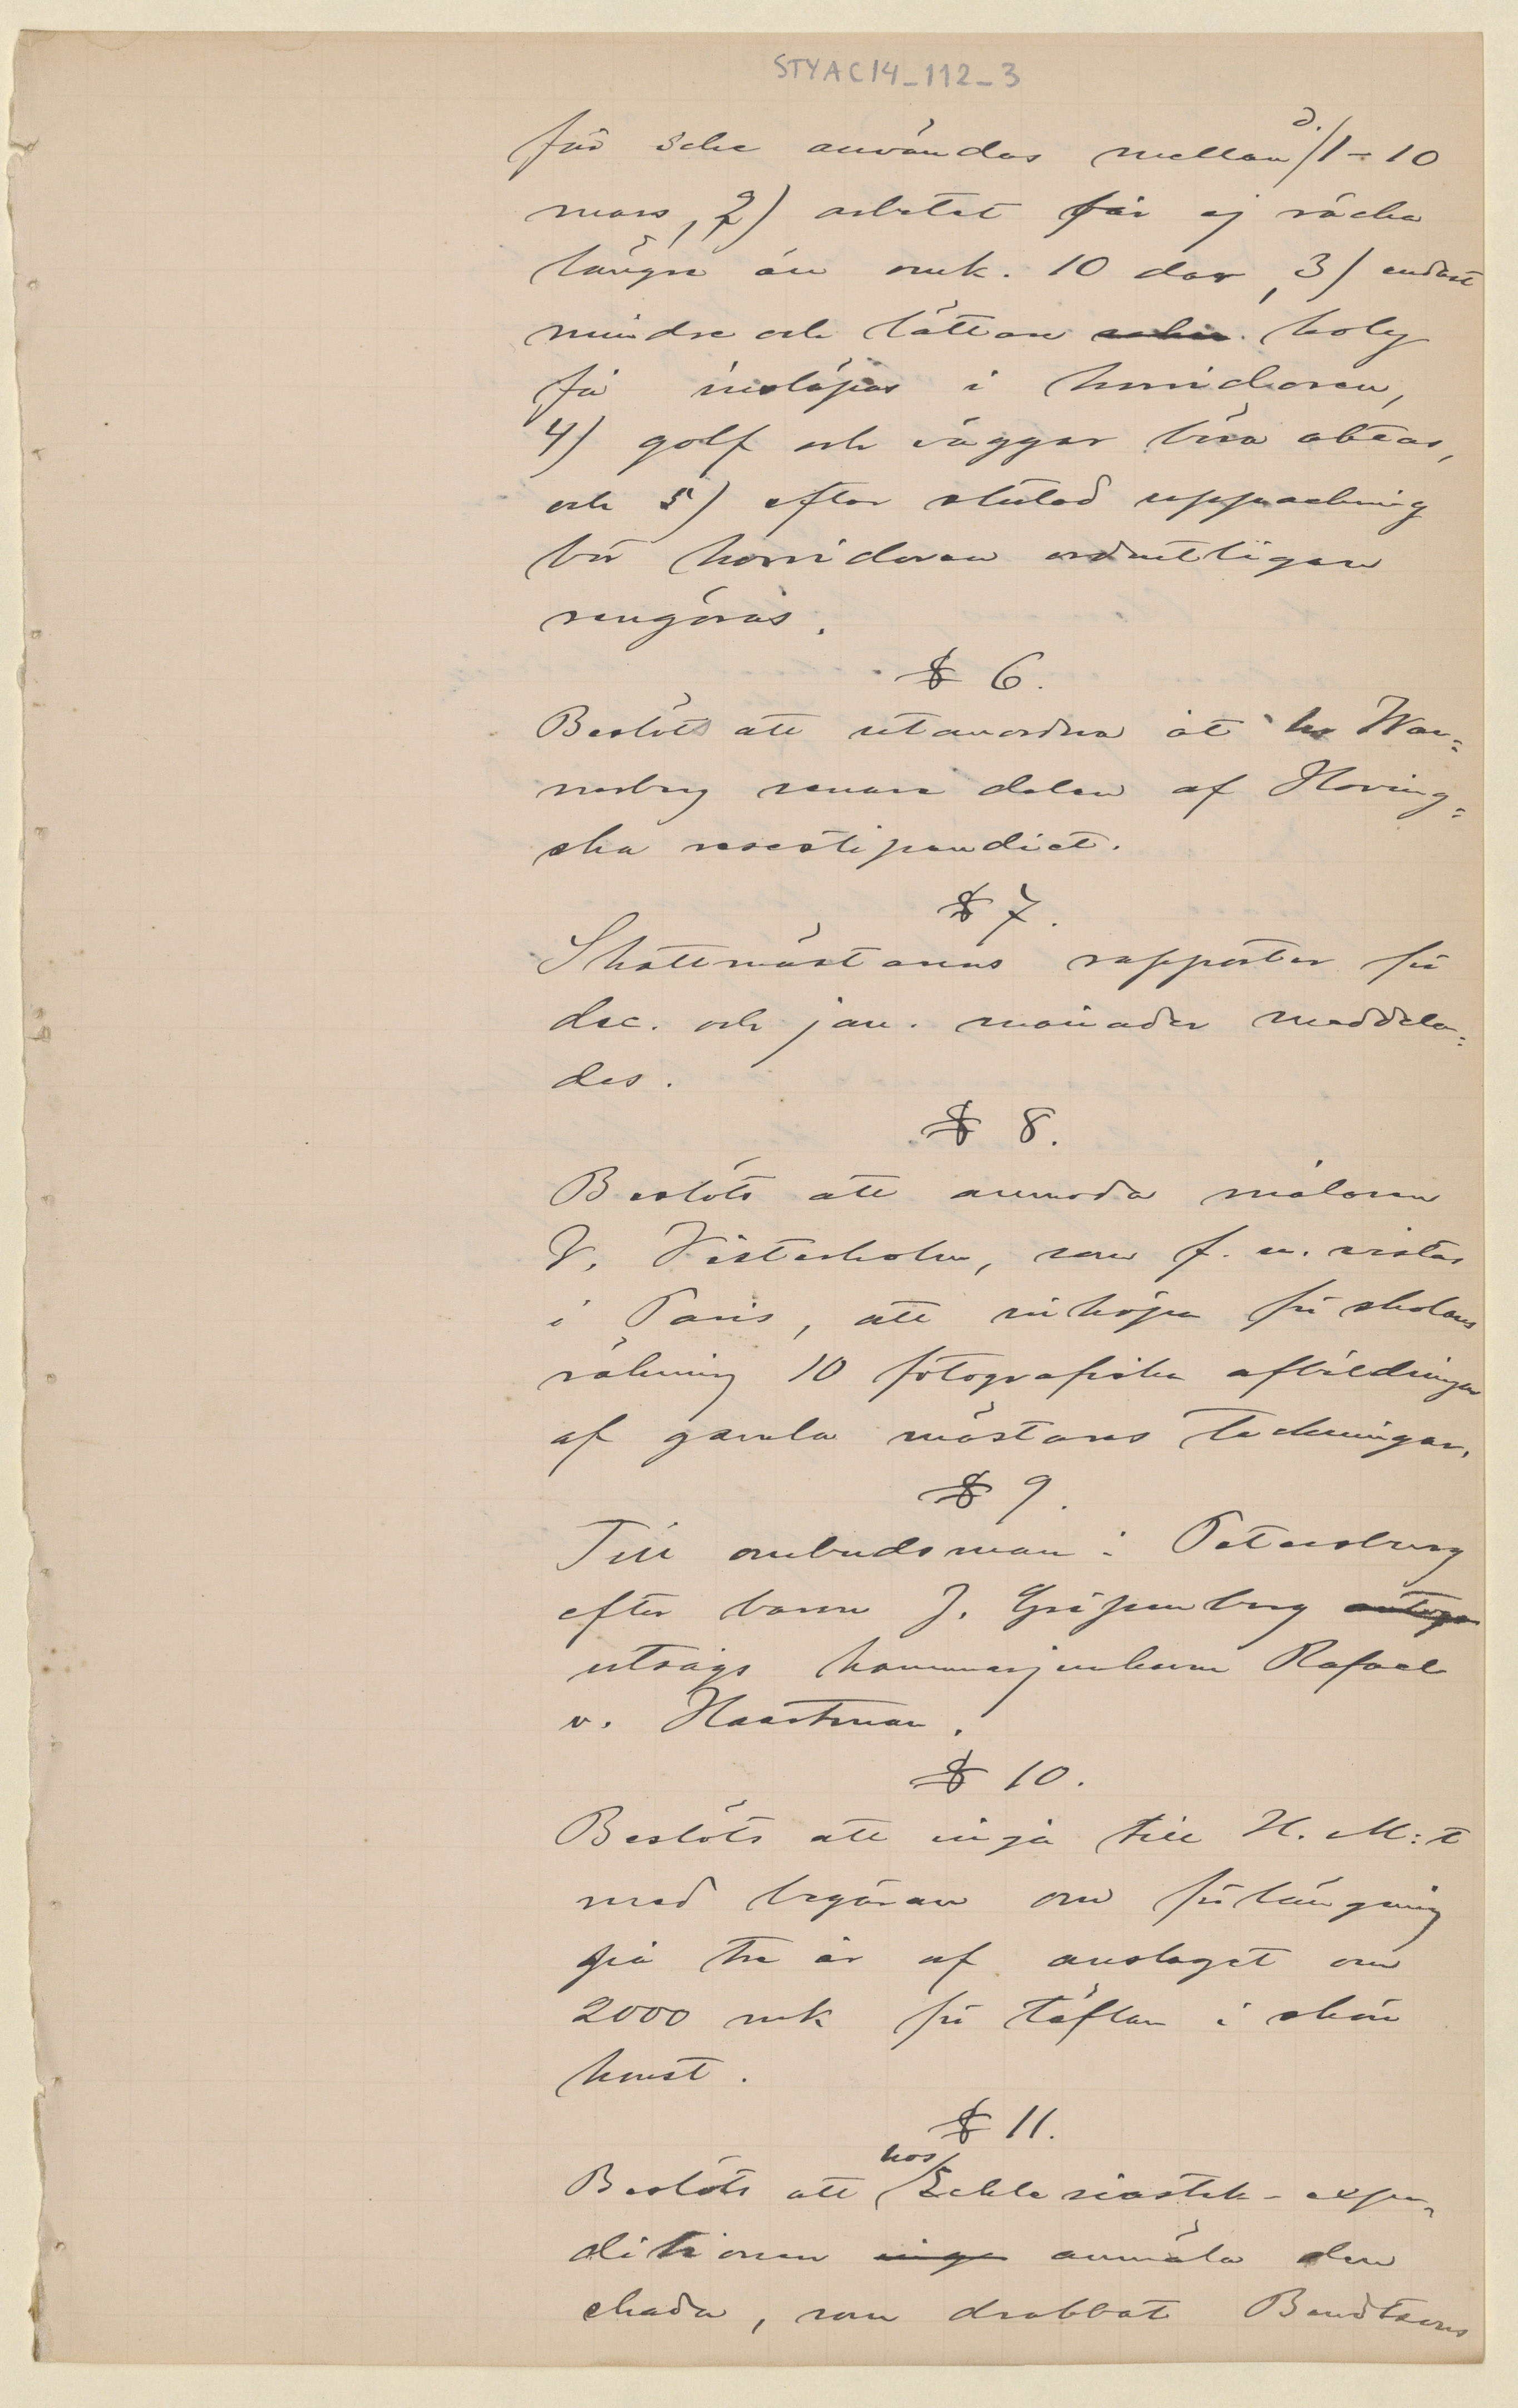 STYAC14_112_3
får icke användas mellan d. 1-10
mars, 2) arbetet får ej räcka
längre än omk. 10 dar, 3) endast
mindre och lättare kolly
få insläpas i korridoren,
4) golf och väggar böra aktas,
och 5) efter slutad uppackning
bör korridoren ordentligen
rengöras.
§ 6.
Beslöts att utanordna åt hr Wen-
nerberg senare delen af Hoving-
ska resestipendiet.
§ 7.
Skattmästarens rapporter för
dec. och jan. månader meddela-
des.
§ 8.
Beslöts att anmoda målaren
V. Vesterholm, som f. n. vistas
i Paris, att inköpa för skolans
räkning 10 fotografiska afbildningar
af gamla mästares teckningar.
§ 9.
Till ombudsman i Petersburg
efter baron J. Gripenberg
utsågs kammarjunkaren Rafael
v. Haartman.
§ 10.
Beslöts att ingå till H. M:t
med begäran om förlängning
på tre år af anslaget om
2000 mk för täflan i skön
konst.
§ 11.
Beslöts att hos Ecklesiastik-expe-
ditionen inge anmäla den
skada, som drabbat Bendtsens